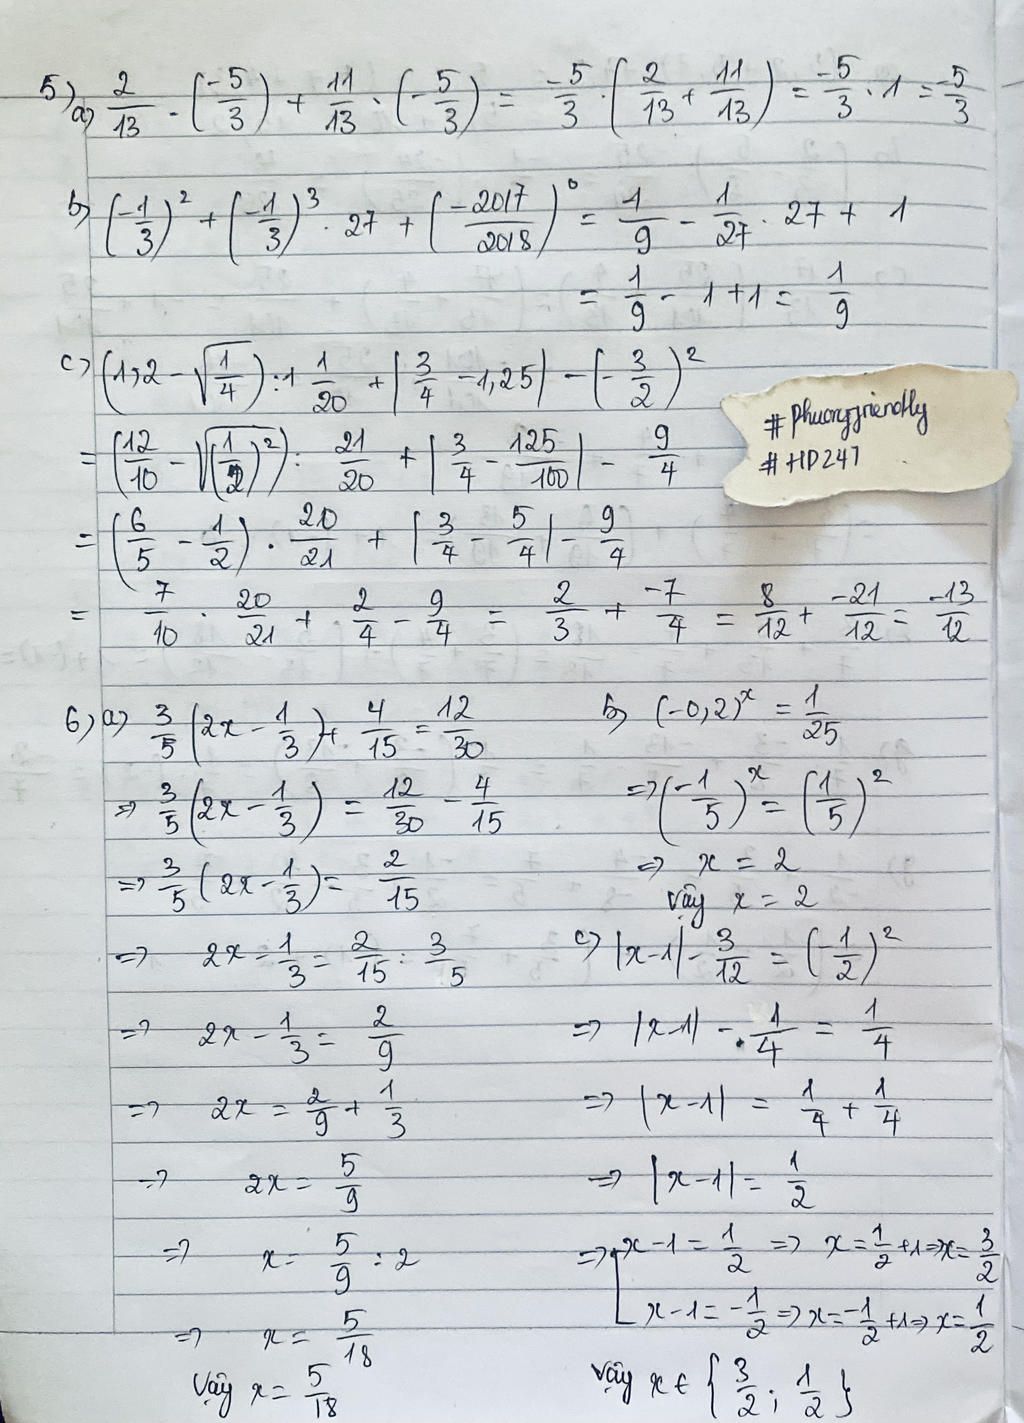 5) a) 2/13 . (-5/3) + 11/13 . (-5/3) = -5/3 . (2/13 + 11/13) = -5/3 . 1 = -5/3
b) (-1/3)² + (-1/3)³ . 27 + (-2017/2018)⁰ = 1/9 - 1/27 . 27 + 1
= 1/9 - 1 + 1 = 1/9
c) (1,2 - √(1/4)) : 1 1/20 + |3/4 - 1,25| - (-3/2)²
#Phuongfriendly
#HD247
= (12/10 - √((1/2)²)) : 21/20 + |3/4 - 125/100| - 9/4
= (6/5 - 1/2) . 20/21 + |3/4 - 5/4| - 9/4
= 7/10 . 20/21 + 2/4 - 9/4 = 2/3 + -7/4 = 8/12 + -21/12 = -13/12
6) a) 3/5 (2x - 1/3) + 4/15 = 12/30
=> 3/5 (2x - 1/3) = 12/30 - 4/15
=> 3/5 (2x - 1/3) = 2/15
=> 2x - 1/3 = 2/15 : 3/5
=> 2x - 1/3 = 2/9
=> 2x = 2/9 + 1/3
=> 2x = 5/9
=> x = 5/9 : 2
=> x = 5/18
Vậy x = 5/18
b) (-0,2)ˣ = 1/25
=> (-1/5)ˣ = (1/5)²
=> x = 2
Vậy x = 2
c) |x-1| - 3/12 = (-1/2)²
=> |x-1| - 1/4 = 1/4
=> |x-1| = 1/4 + 1/4
=> |x-1| = 1/2
=> [ x-1 = 1/2 => x = 1/2 + 1 => x = 3/2
x-1 = -1/2 => x = -1/2 + 1 => x = 1/2
Vậy x ∈ {3/2 ; 1/2}